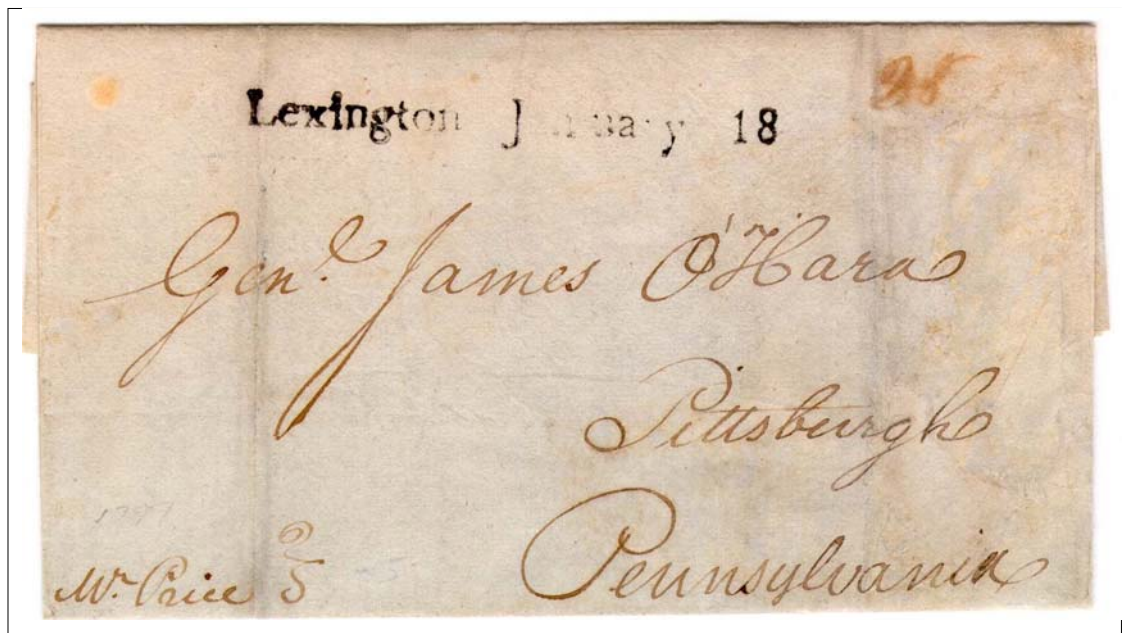 Lexington January 18
25
Genl. James O'Hara
Pittsburgh
Pennsylvania
1797
Mr. Price